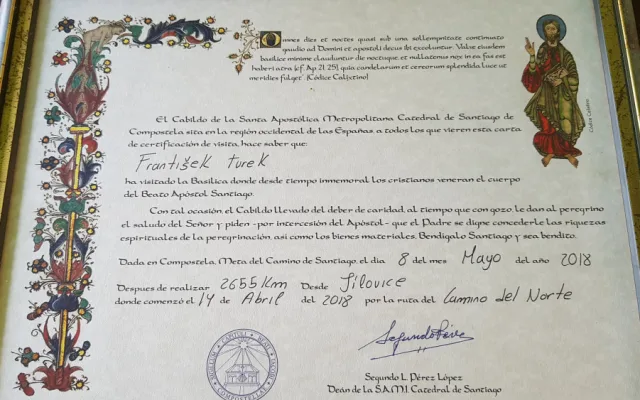 Omnes dies et noctes quasi sub una sollempnitate continuato
gaudio ad Domini et apostoli decus ibi excoluntur. Valve eiusdem
basilice minime clauduntur die noctuque et nullatenus nox in ea fas est
haberi atra (cf. Ap 21, 25), quia candelarum et cereorum splendida luce ut
meridies fulget". (Códice Calixtino)
Códice Calixtino
El Cabildo de la Santa Apostólica Metropolitana Catedral de Santiago de
Compostela sita en la región occidental de las Españas, a todos los que vieren esta carta
de certificación de visita, hace saber que:
František Turek
ha visitado la Basílica donde desde tiempo inmemorial los cristianos veneran el cuerpo
del Beato Apóstol Santiago.
Con tal ocasión el Cabildo llevado del deber de caridad, al tiempo que con gozo, le dan al peregrino
el saludo del Señor y piden -por intercesión del Apóstol- que el Padre se digne concederle las riquezas
espirituales de la peregrinación, así como los bienes materiales. Bendígalo Santiago y sea bendito.
Dada en Compostela, Meta del Camino de Santiago, el día 8 del mes Mayo del año 2018
Despues de realizar 2655 Km Desde Jílovice
donde comenzó el 14 de Abril del 2018 por la ruta del Camino del Norte
Segundo L. Pérez López
Deán de la S.A.M.I. Catedral de Santiago